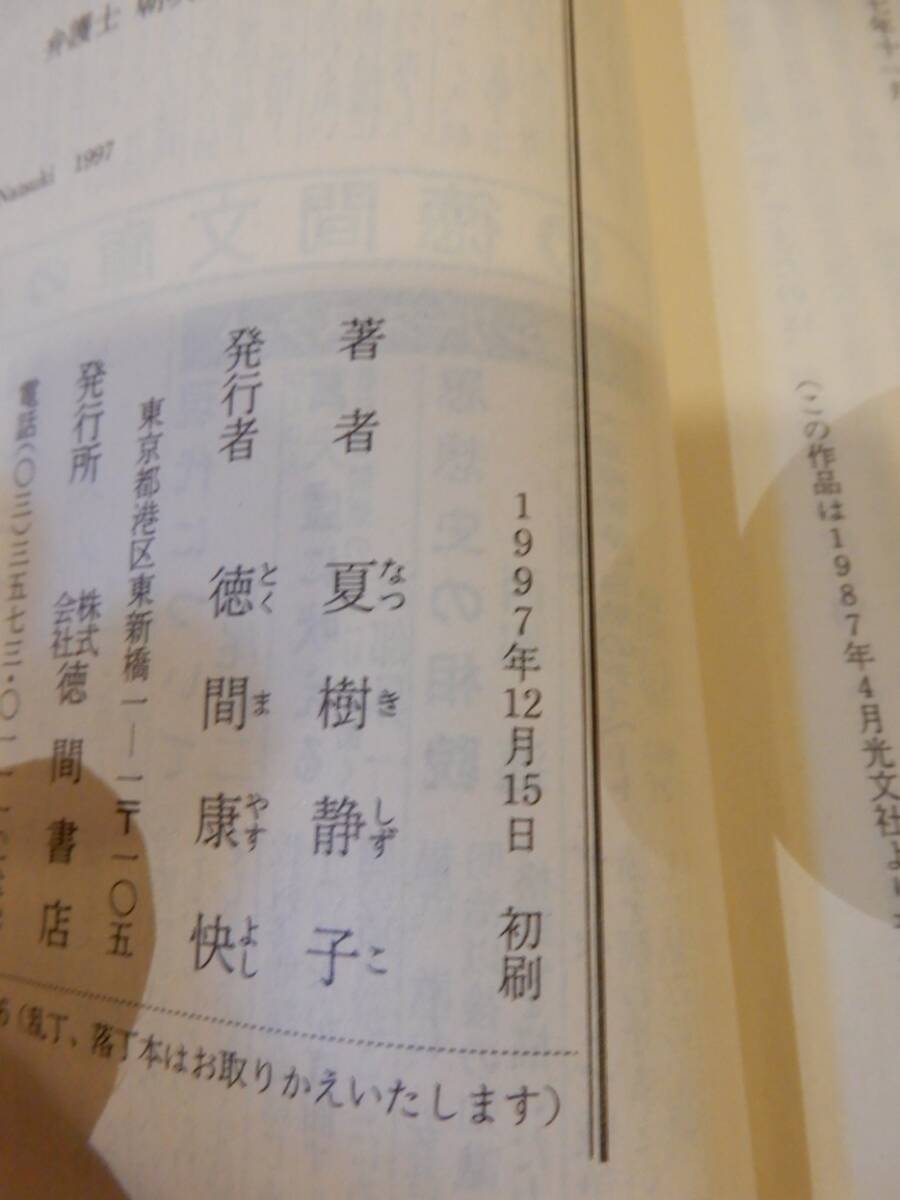 (この作品は1987年4月光文社より
弁護士
Natsuki 1997
徳間文庫の
1997年12月15日 初刷
著者 夏樹静子
なつきしずこ
発行者 徳間康快
とくまやすよし
東京都港区東新橋一—一〒一〇五
発行所 株式会社徳間書店
電話(〇三)三五七三・〇一一一
(乱丁、落丁本はお取りかえいたします)